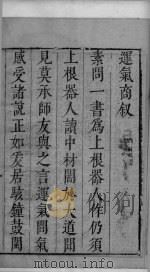 運氣商叙
素問一書為上根器人作仍須
上根器人讀中材大道
見莫承師友與之言運氣聞氣
感受諸說正如爰居駭鐘鼓聞